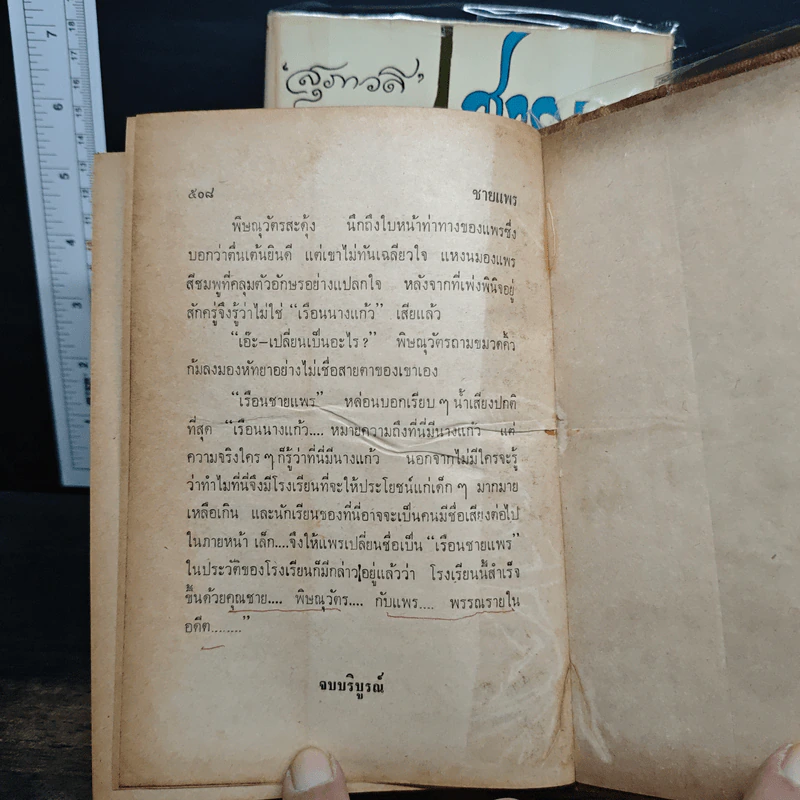 'สุภาวดี'
๕๐๘ ชายแพร
พิษณุวัตรสะดุ้ง นึกถึงใบหน้าท่าทางของแพรซึ่ง
บอกว่าตื่นเต้นยินดี แต่เขาไม่ทันเฉลียวใจ แหงนมองแพร
สีชมพูที่คลุมตัวอักษรอย่างแปลกใจ หลังจากที่เพ่งพินิจอยู่
สักครู่จึงรู้ว่าไม่ใช่ “เรือนนางแก้ว” เสียแล้ว
“เอ๊ะ—เปลี่ยนเป็นอะไร ?” พิษณุวัตรถามขมวดคิ้ว
ก้มลงมองหัทยาอย่างไม่เชื่อสายตาของเขาเอง
“เรือนชายแพร” หล่อนบอกเรียบ ๆ น้ำเสียงปกติ
ที่สุด “เรือนนางแก้ว.... หมายความถึงที่นี่มีนางแก้ว แต่
ความจริงใคร ๆ ก็รู้ว่าที่นี่มีนางแก้ว นอกจากไม่มีใครจะรู้
ว่าทำไมที่นี่จึงมีโรงเรียนที่จะให้ประโยชน์แก่เด็ก ๆ มากมาย
เหลือเกิน และนักเรียนของที่นี่อาจจะเป็นคนมีชื่อเสียงต่อไป
ในภายหน้า เล็ก....จึงให้แพรเปลี่ยนชื่อเป็น “เรือนชายแพร”
ในประวัติของโรงเรียนก็มีกล่าวอยู่แล้วว่า โรงเรียนนี้สำเร็จ
ขึ้นด้วยคุณชาย.... พิษณุวัตร.... กับแพร.... พรรณรายใน
อดีต........”
จบบริบูรณ์